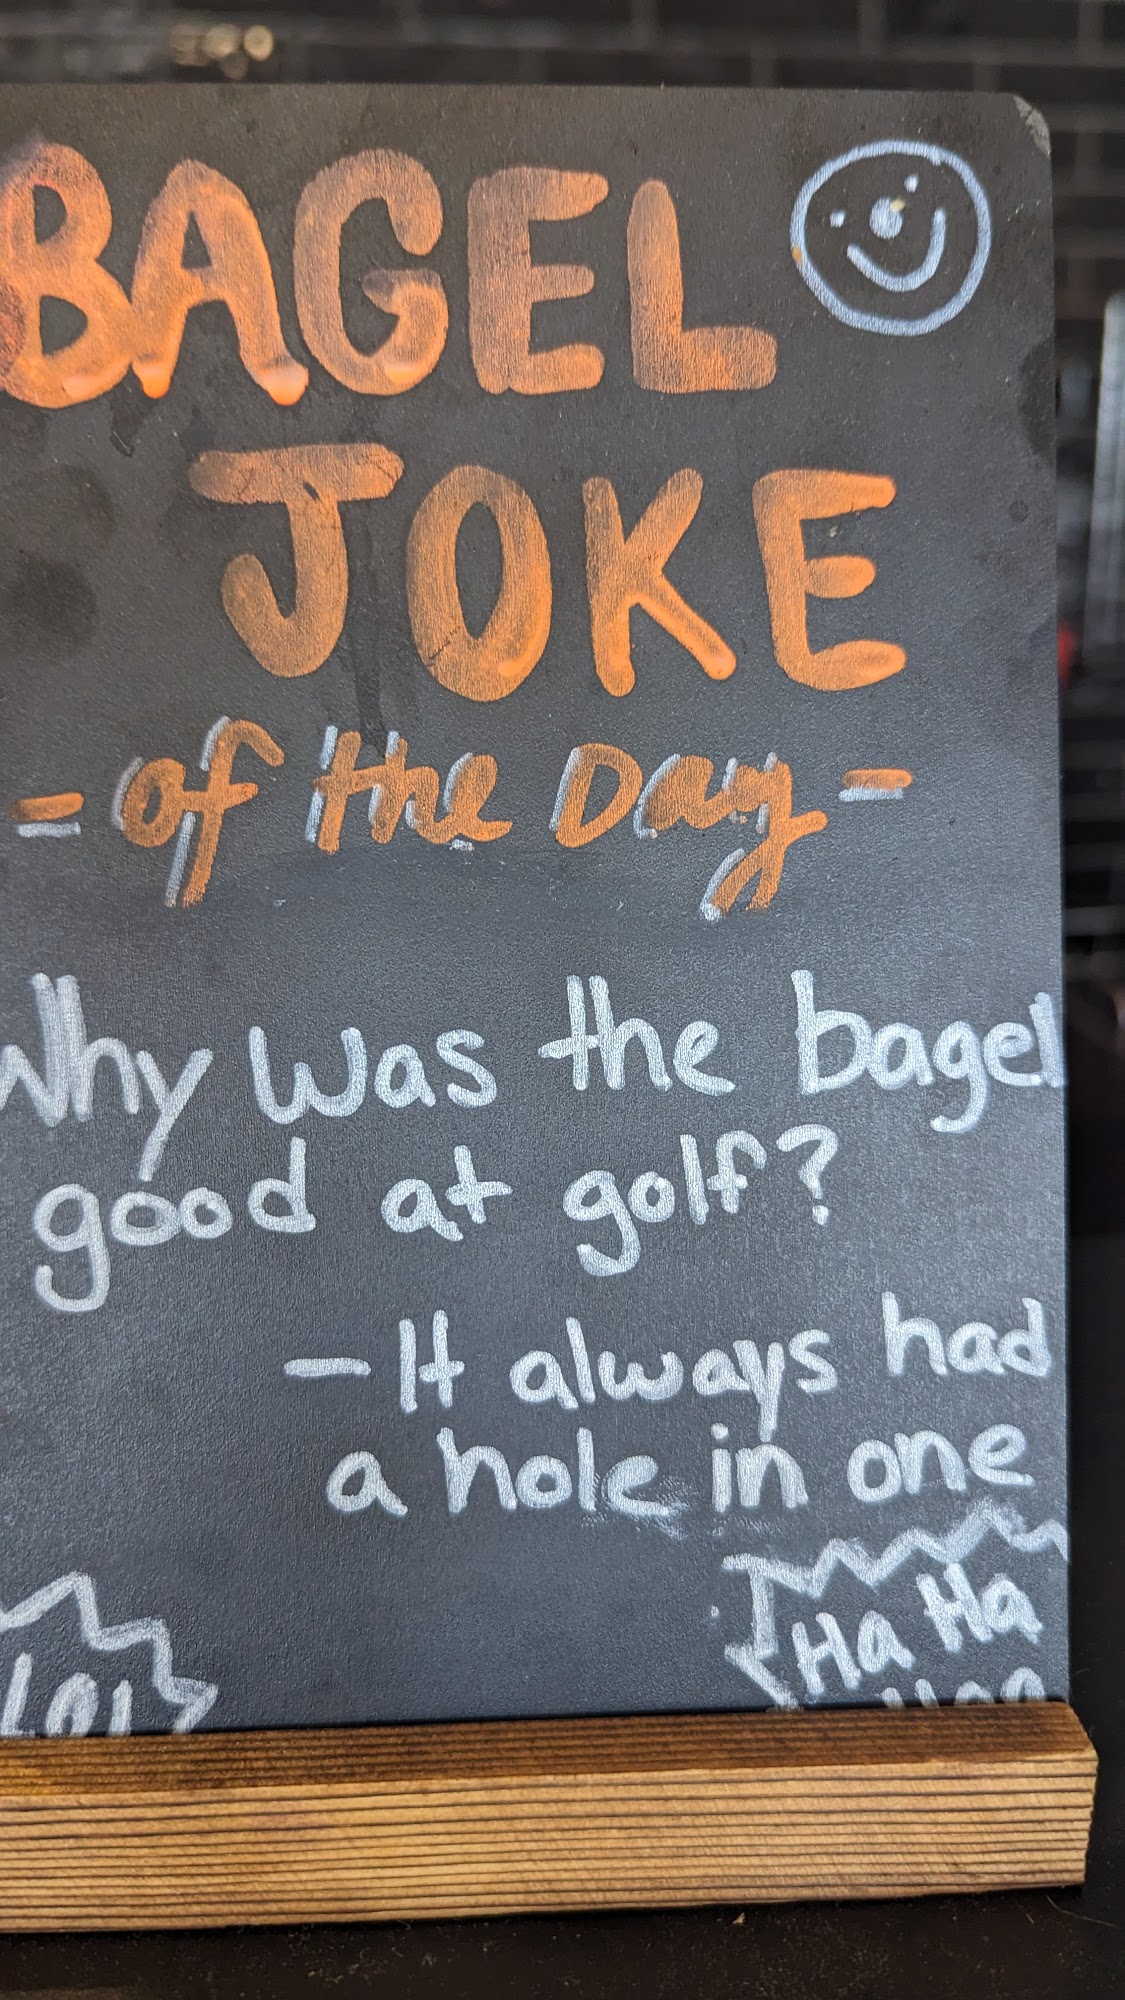 BAGEL
JOKE
- of the Day -
Why Was the bagel
good at golf?
- It always had
a hole in one
Ha Ha